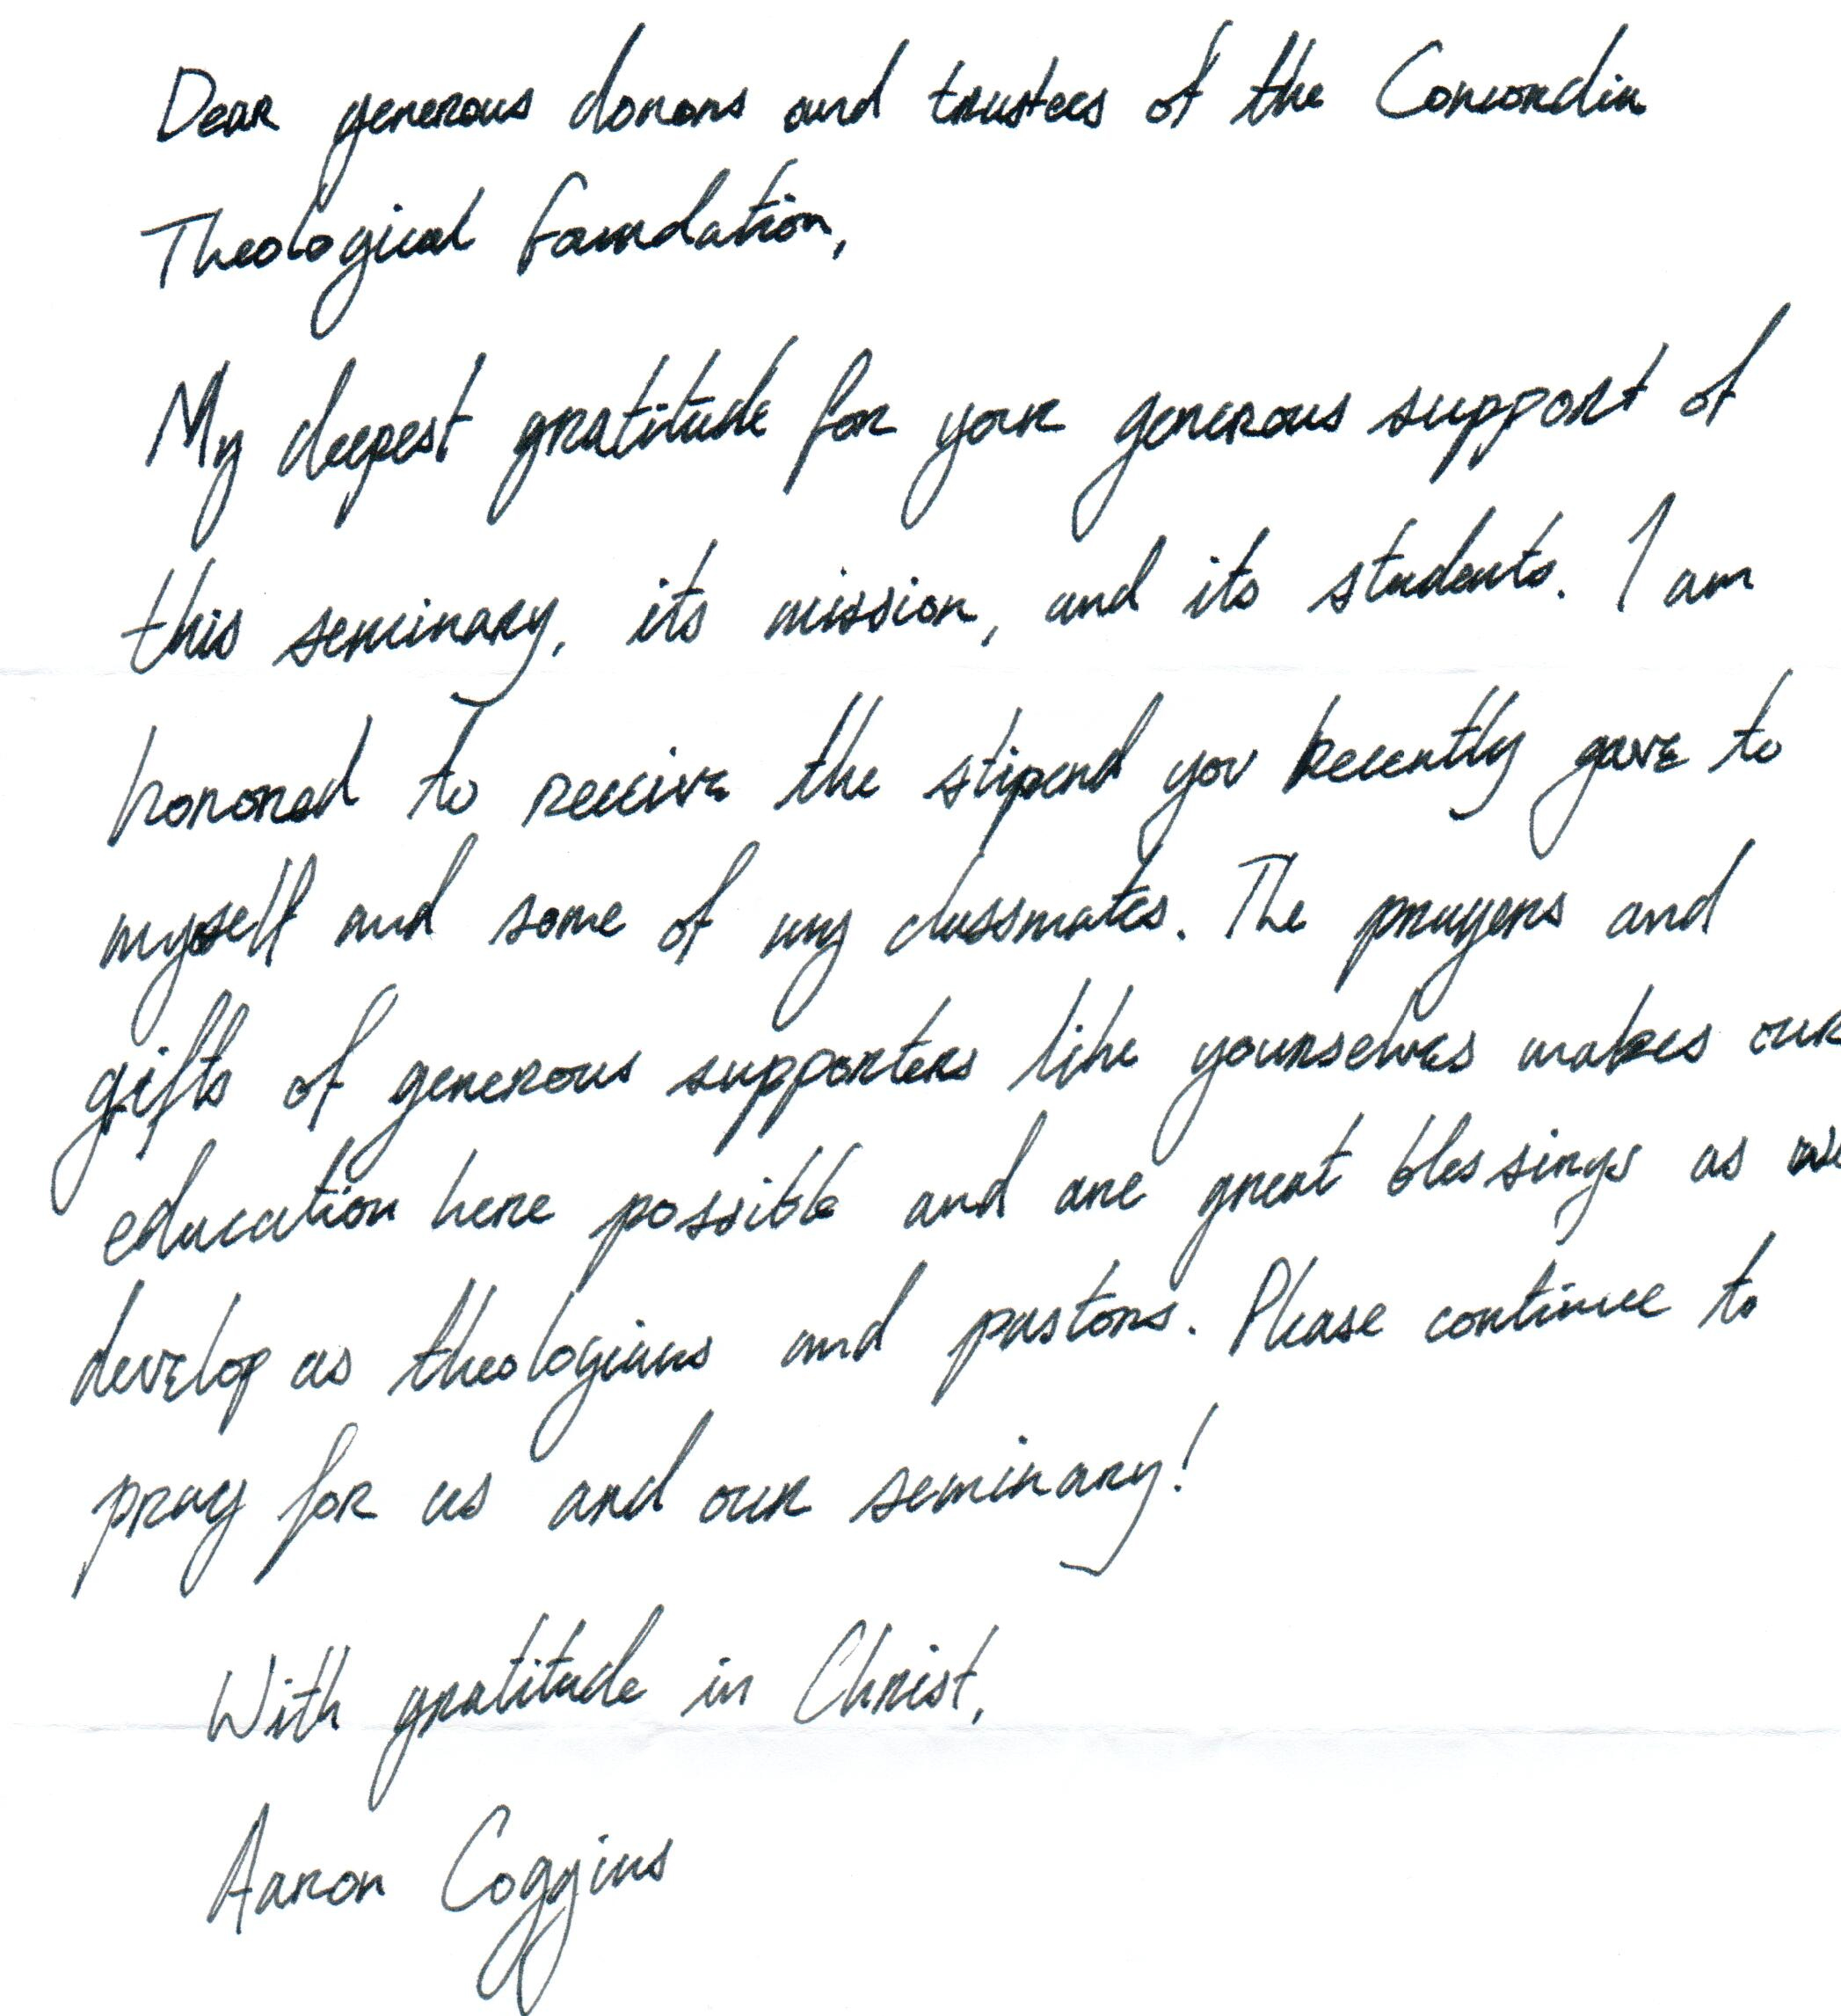 Dear generous donors and trustees of the Concordia
Theological Foundation,
My deepest gratitude for your generous support of
this seminary, its mission, and its students. I am
honored to receive the stipend you recently gave to
myself and some of my classmates. The prayers and
gifts of generous supporters like yourselves makes our
education here possible and are great blessings as we
develop as theologians and pastors. Please continue to
pray for us and our seminary!
With gratitude in Christ,
Aaron Coggins